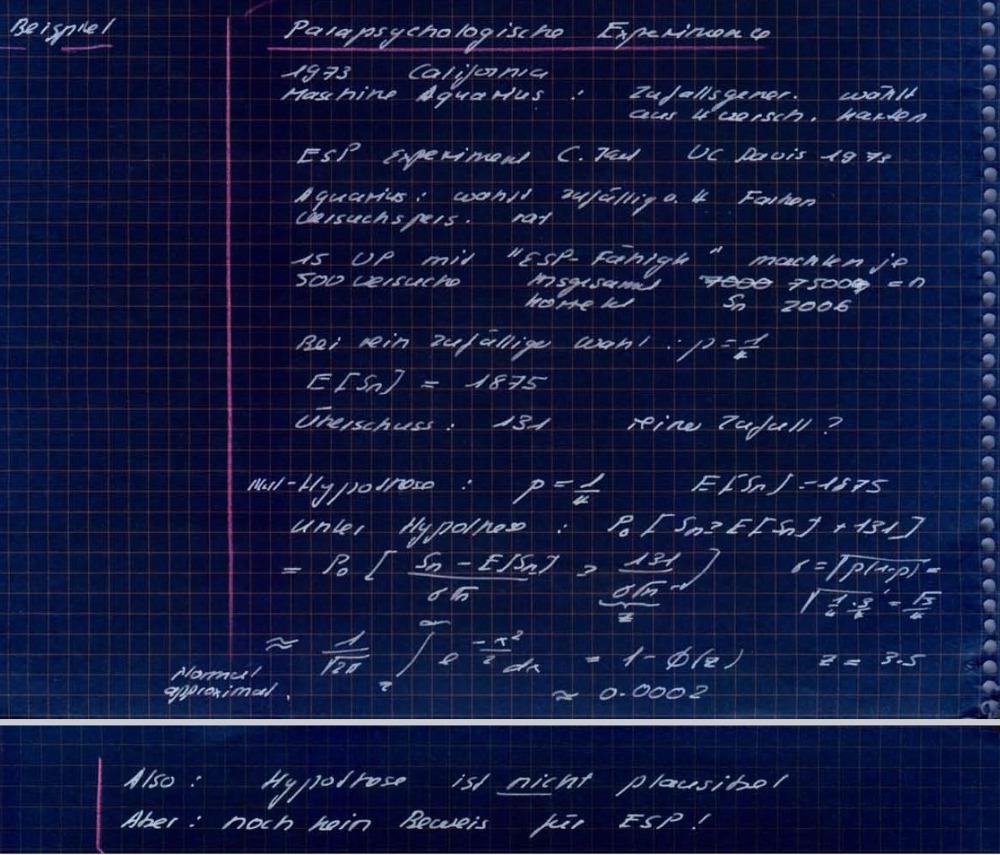 Beispiel
Parapsychologische Experimente
1973 California
Maschine Aquarius : Zufallsgener. wählt
aus 4 versch. Karten
ESP Experiment C. Tart UC Davis 1973
Aquarius: wählt zufällig a. 4 Farben
Versuchspers. rät
15 VP mit "ESP-Fähigk" machten je
500 Versuche insgesamt 7500 = n
korrekt Sn 2006
Bei rein zufälliger Wahl : p = 1/4
E[Sn] = 1875
Überschuss : 131 reiner Zufall ?
Null-Hypothese : p = 1/4 E[Sn] = 1875
Unter Hypothese : P₀ [ Sn ≥ E[Sn] + 131 ]
= P₀ [ (Sn - E[Sn]) / σ√n ≥ 131 / σ√n ] σ = √p(1-p) =
z √(1/4 · 3/4) = √3/4
≈ 1/√2π ∫ e^(-x²/2) dx = 1 - Φ(z) z = 3.5
Normal
approximat. ≈ 0.0002
Also : Hypothese ist nicht plausibel
Aber : noch kein Beweis für ESP !